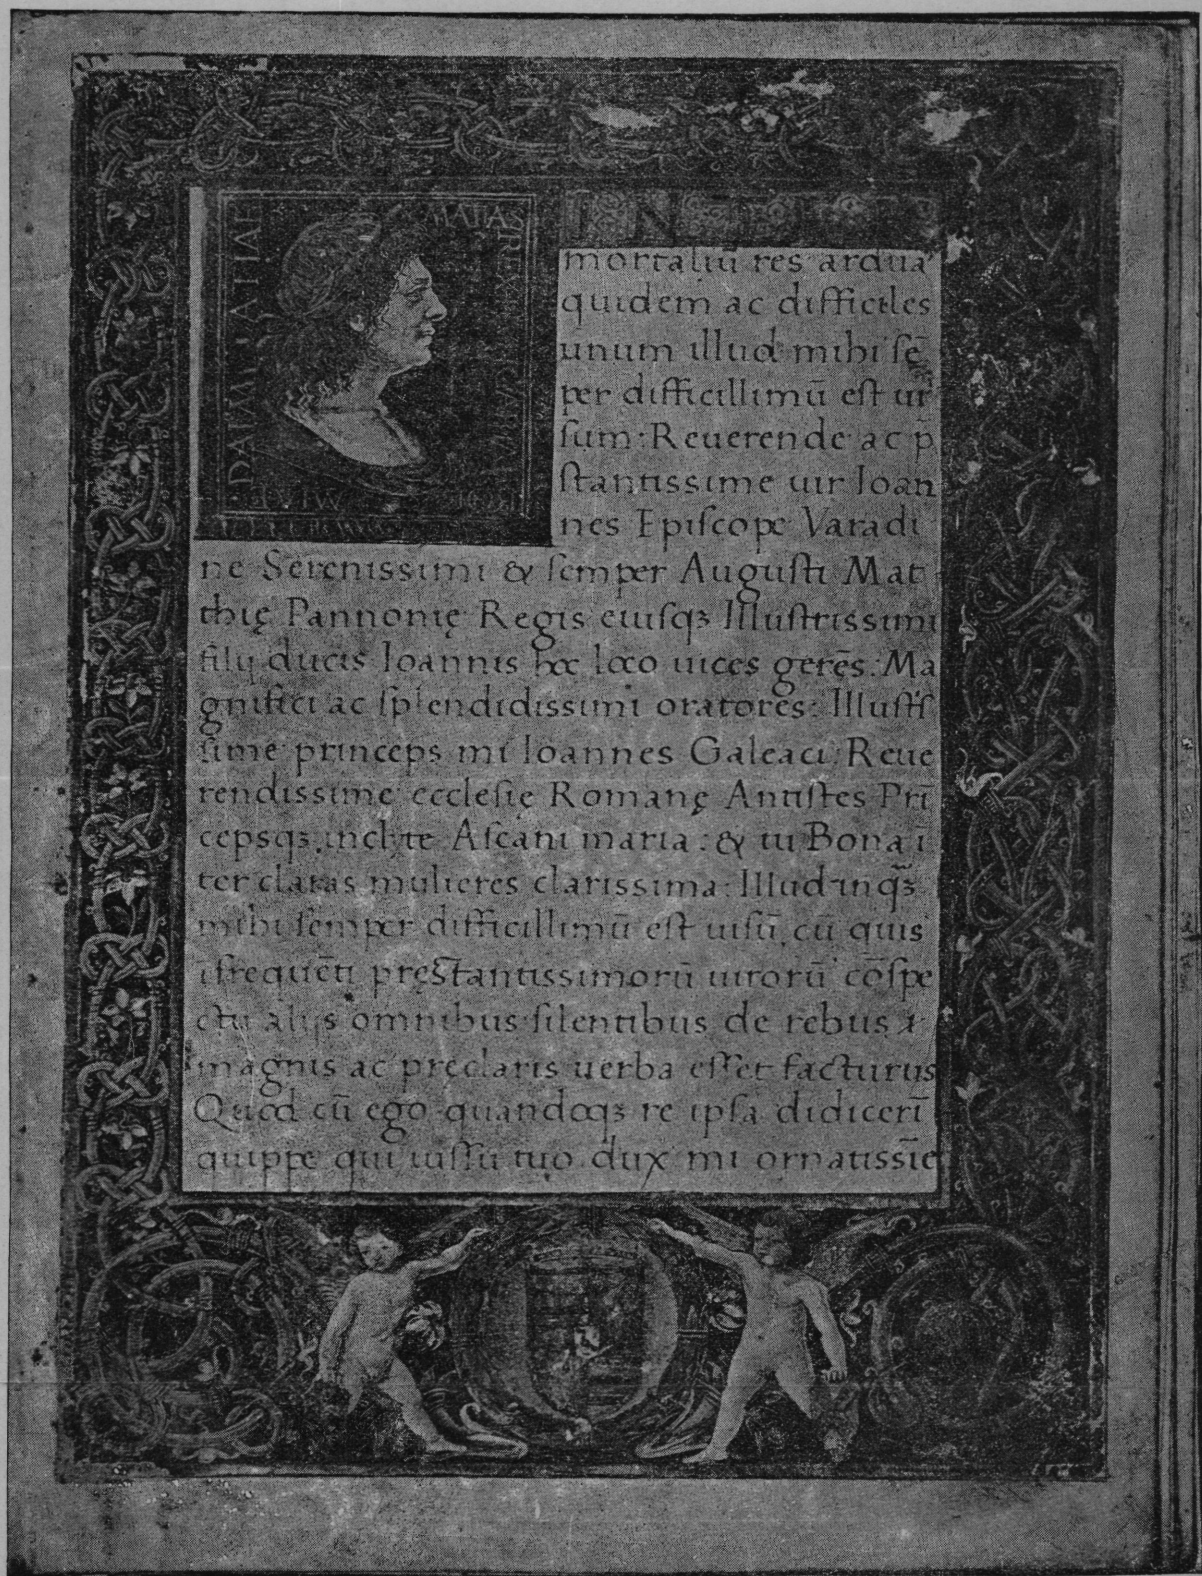 IN TER
mortaliū res ardua
quidem ac difficiles
unum illud mihi sē
per difficillimū est ui
sum: Reuerende ac p̄
stantissime uir Ioan
nes Episcope Varadi
ne Serenissimi & semper Augusti Mat
thię Pannonię Regis eiusqꝫ Illustrissimi
filij ducis Ioannis hoc loco uices gerēs: Ma
gnifici ac splendidissimi oratores: Illustris
sime princeps mi Ioannes Galeaci: Reue
rendissime ecclesię Romanę Antistes Prī
cepsqꝫ inclite Ascani maria: & tu Bona ī
ter claras mulieres clarissima: Illud inqꝫ
mihi semper difficillimū est uisū, cū quis
ī frequēti pręstantissimorū uirorū cōspe
ctu alijs omnibus silentibus de rebus
magnis ac preclaris uerba esset facturus
Quod cū ego quandoqꝫ re ipsa didicerī
quippe qui iussu tuo dux mi ornatissīe